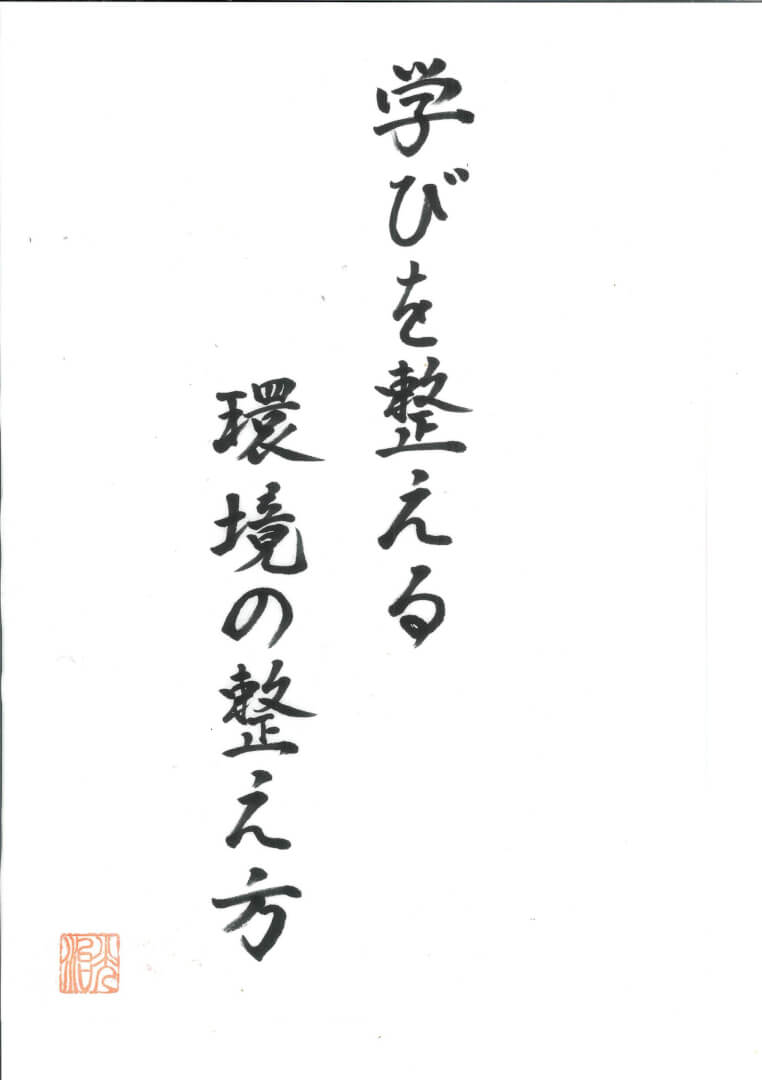 学びを整える
環境の整え方